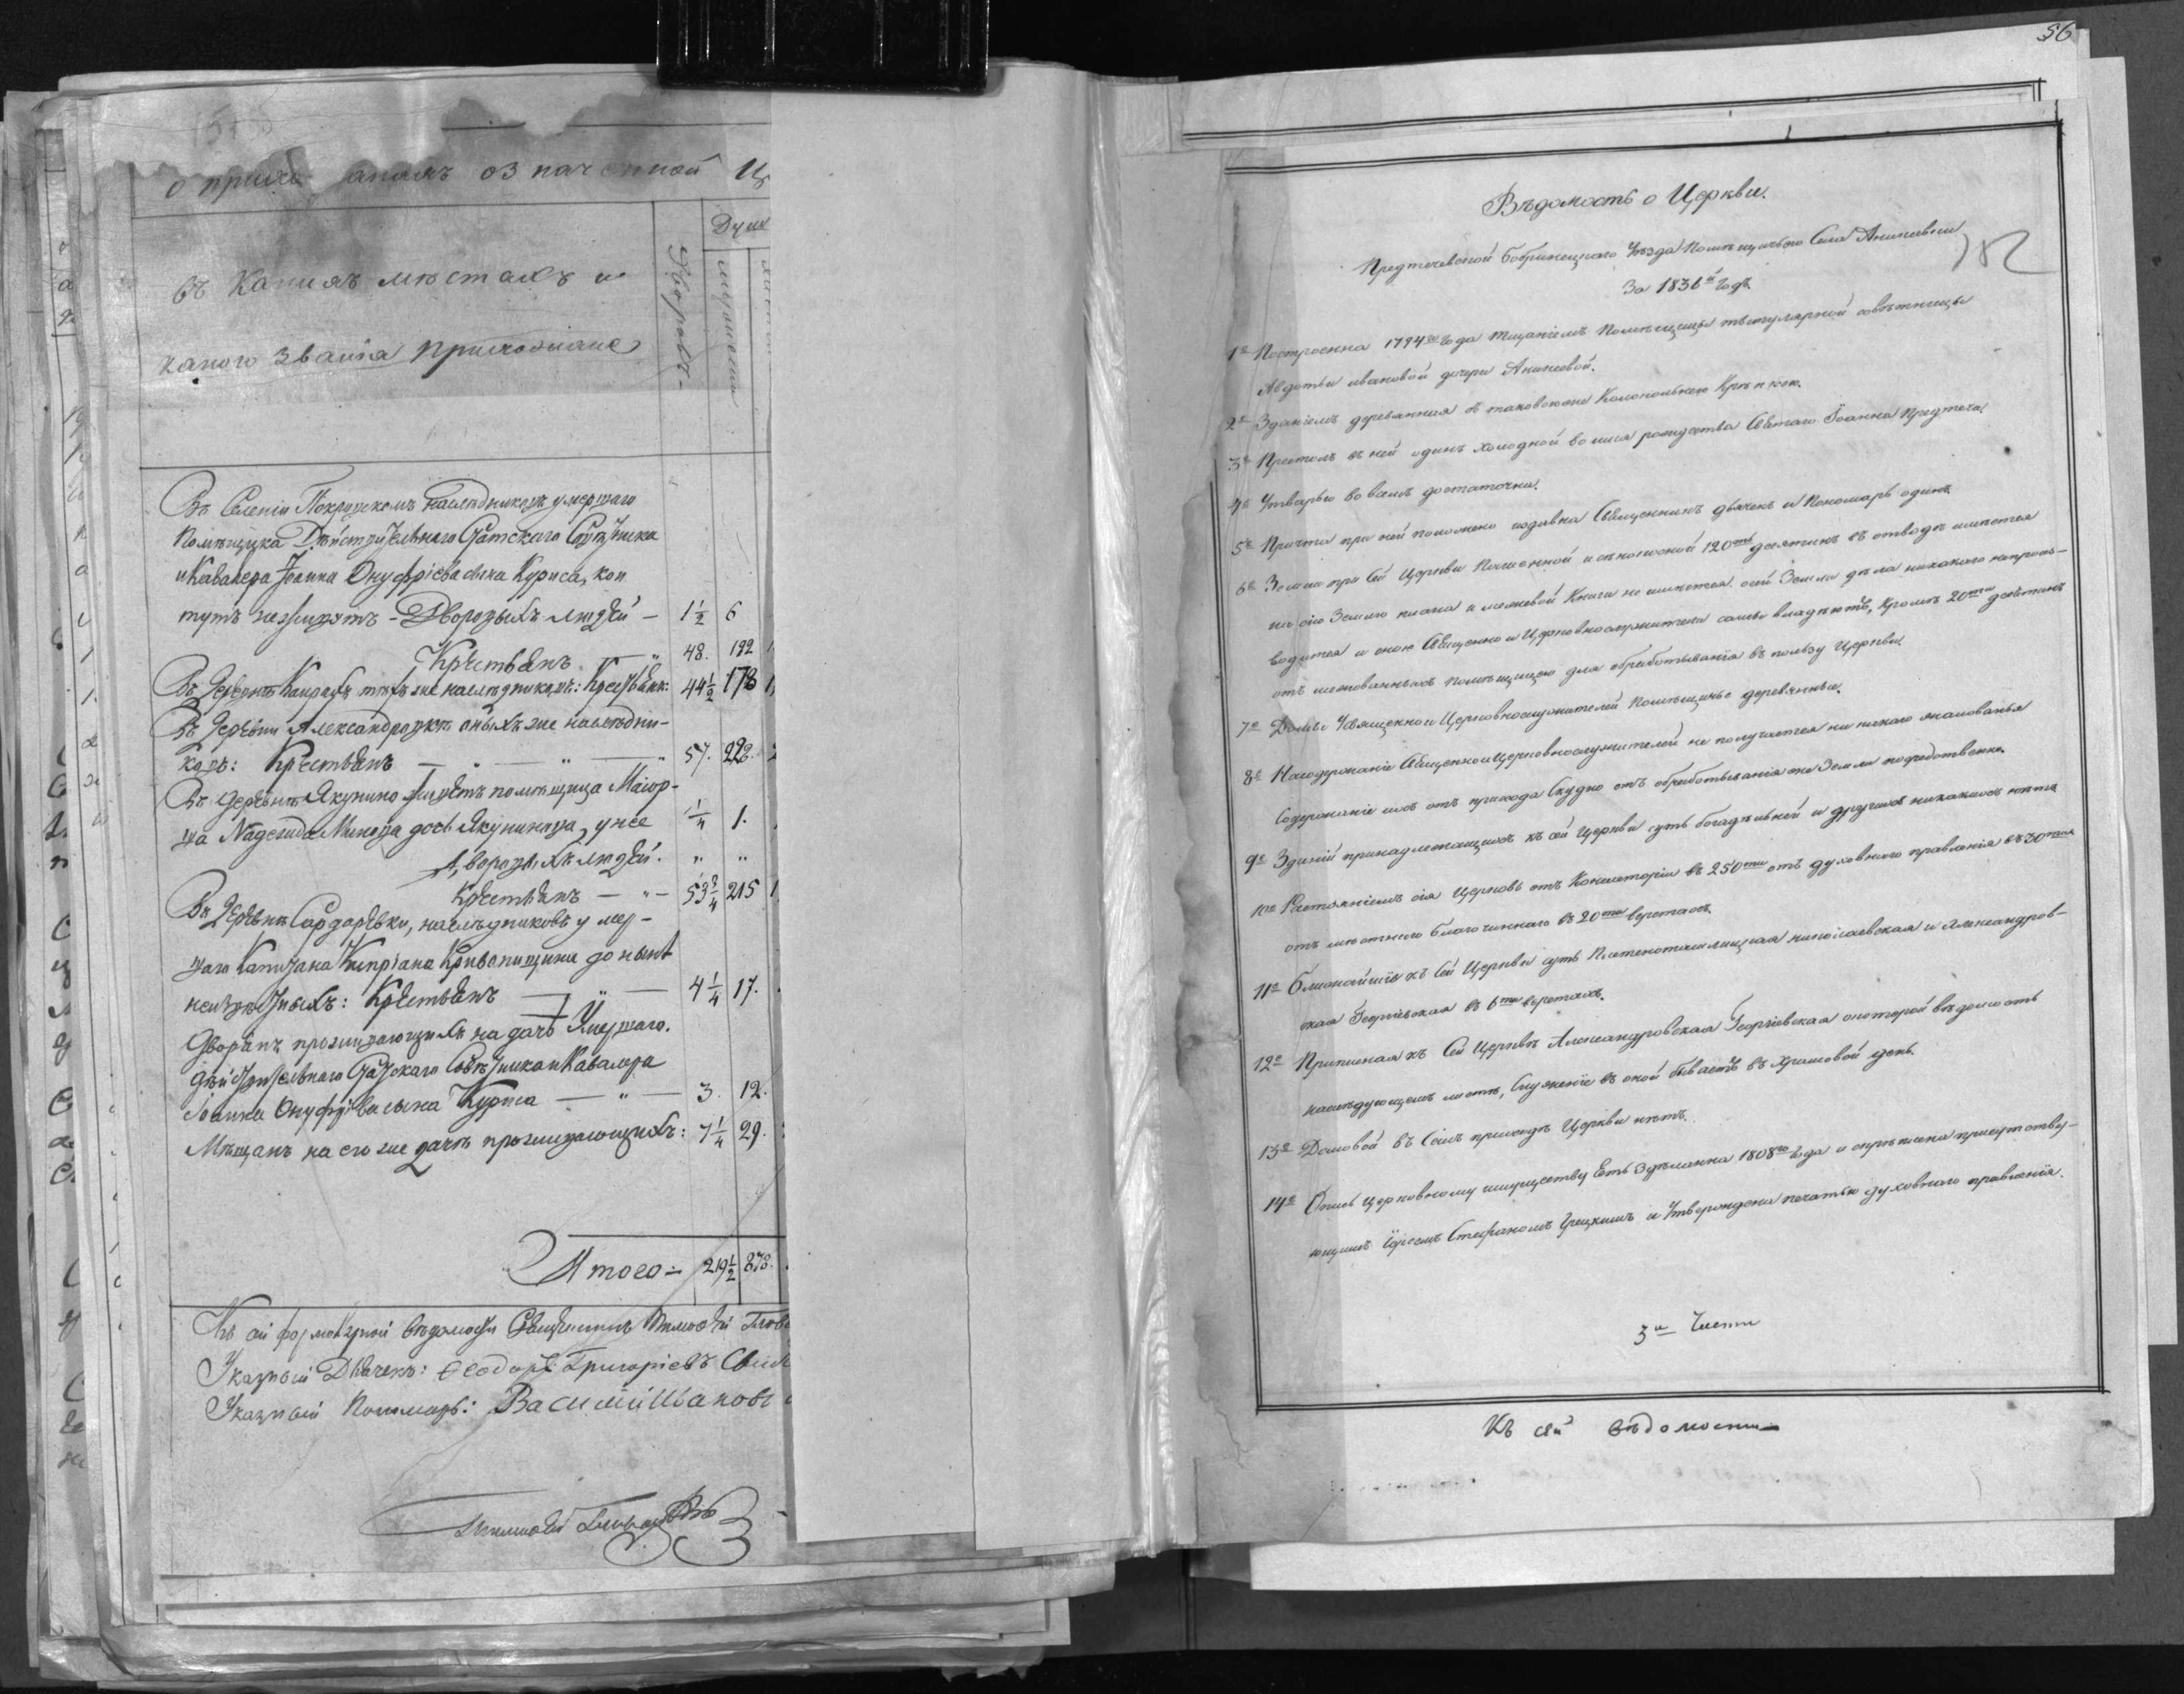 о прихо жанахъ означенной Ц
въ какихъ мѣстахъ и
какого званія прихожане
Дворовъ
Душ
мужеска
Въ Селеніи Покровскомъ наслѣдниковъ умершаго
Помѣщика Дѣйствительнаго Статскаго Совѣтника
и Кавалера Іоанна Онуфріева сына Куриса, кои
тутъ не живутъ - Дворовыхъ людей — 1½ 6
Крестьянъ — „ 48. 192
Въ Деревнѣ Каирахъ тѣхъ же наслѣдниковъ: Крестьянъ: 44½ 178
Въ Деревни Александровкѣ оныхъ же наслѣдни-
ковъ: Крестьянъ — „ — „ — „ 57. 228.
Въ деревнѣ Якунино живетъ помѣщица Маіор-
ша Надежда Якунина, у нее ¼ 1.
Дворовыхъ людей. „ „
Крестьянъ — „ — 53¾ 215
Въ Деревнѣ Сардаревки, наслѣдниковъ умер-
шаго Капитана Кипріана до нынѣ
Крестьянъ — „ — 4¼ 17.
Дворянъ проживающихъ на дачѣ Умершаго.
дѣйствительнаго Статскаго Совѣтника и Кавалера
Іоанна Онуфріева сына Куриса — „ — 3. 12.
Мѣщанъ на его же дачѣ проживающихъ: 7¼ 29.
Итого — 219½ 878.
Къ сей формулярной вѣдомости Священникъ Тимофей
Указный Дьячекъ: Ѳеодоръ Григоріевъ
Указный Пономарь: Василій Ивановъ
Тимофей
56
Вѣдомость о Церкви.
Предтечевской Бобринецкаго Уѣзда Помѣщичьяго Села Аникеевки
За 1836й Годъ.
1е Построенна 1794го Года тщаніемъ Помѣщицы титулярной совѣтницы
Авдотьи ивановой дочери Аникеевой.
2е Зданіемъ деревянная съ таковою же Колокольнею Крѣпкою.
3е Престолъ въ ней одинъ холодной во имя рождества Святаго Іоанна Предтечи
4е Утварью во всемъ достаточна.
5е Причта при ней положено издавна Священникъ дьячекъ и Пономарь одинъ.
6е Земли при Сей Церкви Пашенной и сѣнокосной 120ть десятинъ въ отводѣ имѣется
на сію Землю плана и межевой Книги не имѣется. сей Земли дѣла никакого непроиз-
водится и оною Священно и Церковнослужители сами владѣютъ, Кромѣ 20ти десятинъ
отъ помѣщицею для обработыванія въ пользу Церкви
7е Домы Священно и Церковнослужителей Помѣщичьи деревянныи.
8е На содержаніе Священно и Церковнослужителей не получается ни какого жалованья
Содержаніе ихъ отъ прихода Скудно отъ обработыванія же Земли посредственно.
9е Зданій принадлежащихъ къ сей Церкви суть богадѣльней и другихъ никакихъ нѣтъ
10е Разтояніемъ сія Церковь отъ Консисторіи въ 250ти отъ духовнаго правленія въ 30ти
отъ мѣстнаго благочиннаго въ 20ти верстахъ.
11е Ближайшіе къ Сей Церкви суть Плетеноташлицкая николаевская и Александров-
ская Георгіевская въ 6ти верстахъ.
12е Приписная къ Сей Церквѣ Александровская Георгіевская о которой вѣдомость
на слѣдующемъ листѣ, Служеніе въ оной бываетъ въ Храмовой день.
13е Домовой въ Семъ приходѣ Церкви нѣтъ.
14е Опись Церковному имуществу Есть Здѣланна 1808го Года и скрѣплена присутству-
ющимъ Іереемъ Стефаномъ и Утверждена печатью духовнаго правленія.
3й Части
Къ сей вѣдомости